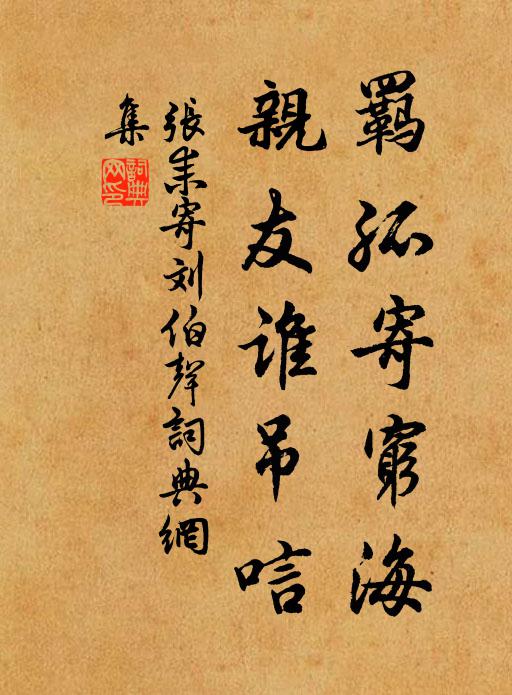 羈孤寄窮海
親友誰吊唁
張耒寄刘伯聲詞典網
集
詞典
网印